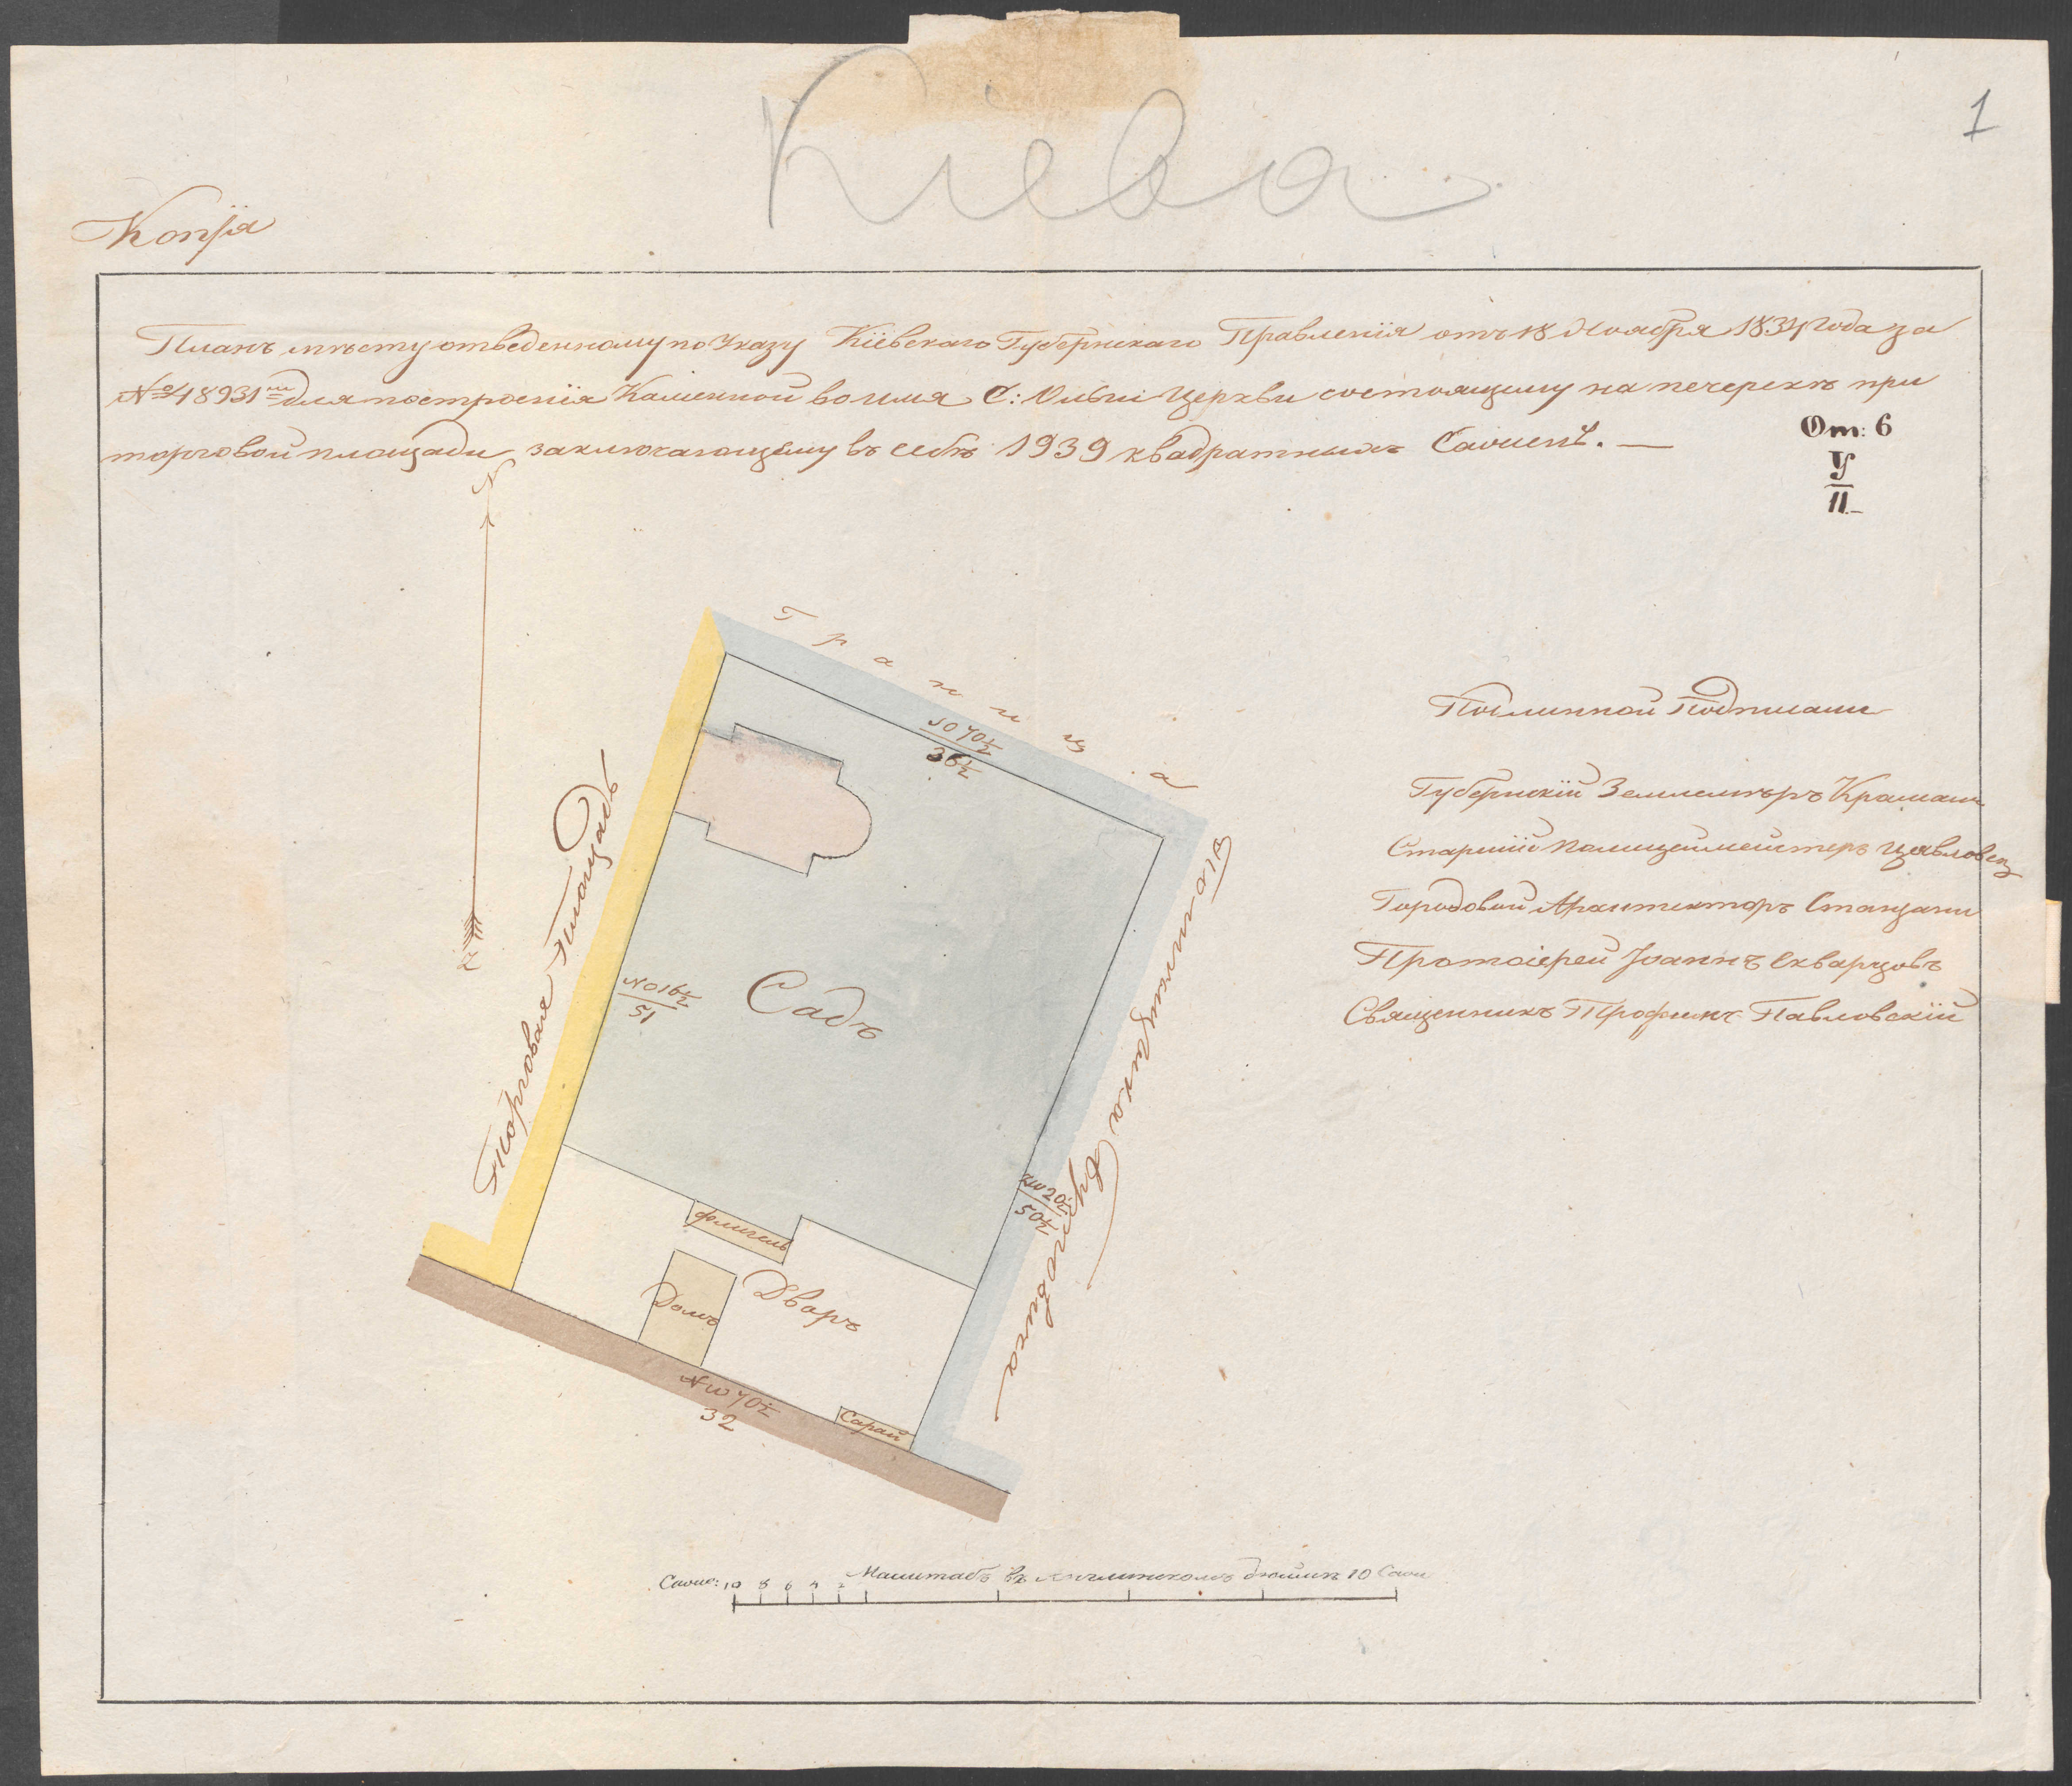 Кіева
1
Копія
Планъ мѣсту отведенному по Указу Кіевскаго Губернскаго Правленія отъ 18 Ноября 1834 года за
№ 48931мъ для построенія Каменной во имя С: Ольги Церкви состоящему на печерскѣ при
торговой площади, заключающему въ себѣ 1939 квадратныхъ Саженъ. —
От: 6
У
11.
Граница
SO 70½
36½
Торговая Площадь
NO 16½
51
Садъ
SW 20
50½
флигель
Домъ
Дворъ
Сарай
NW 70½
32
Подлинной Подписали
Губернскій Землемѣръ
Старшій Полицеймейстеръ
Городовой Архитекторъ Станзани
Протоіерей Іоаннъ Скварцовъ
Священникъ Трофимъ Павловскій
Саже: 10 8 6 4 2 Масштабъ въ Англинскомъ дюймѣ 10 Саже